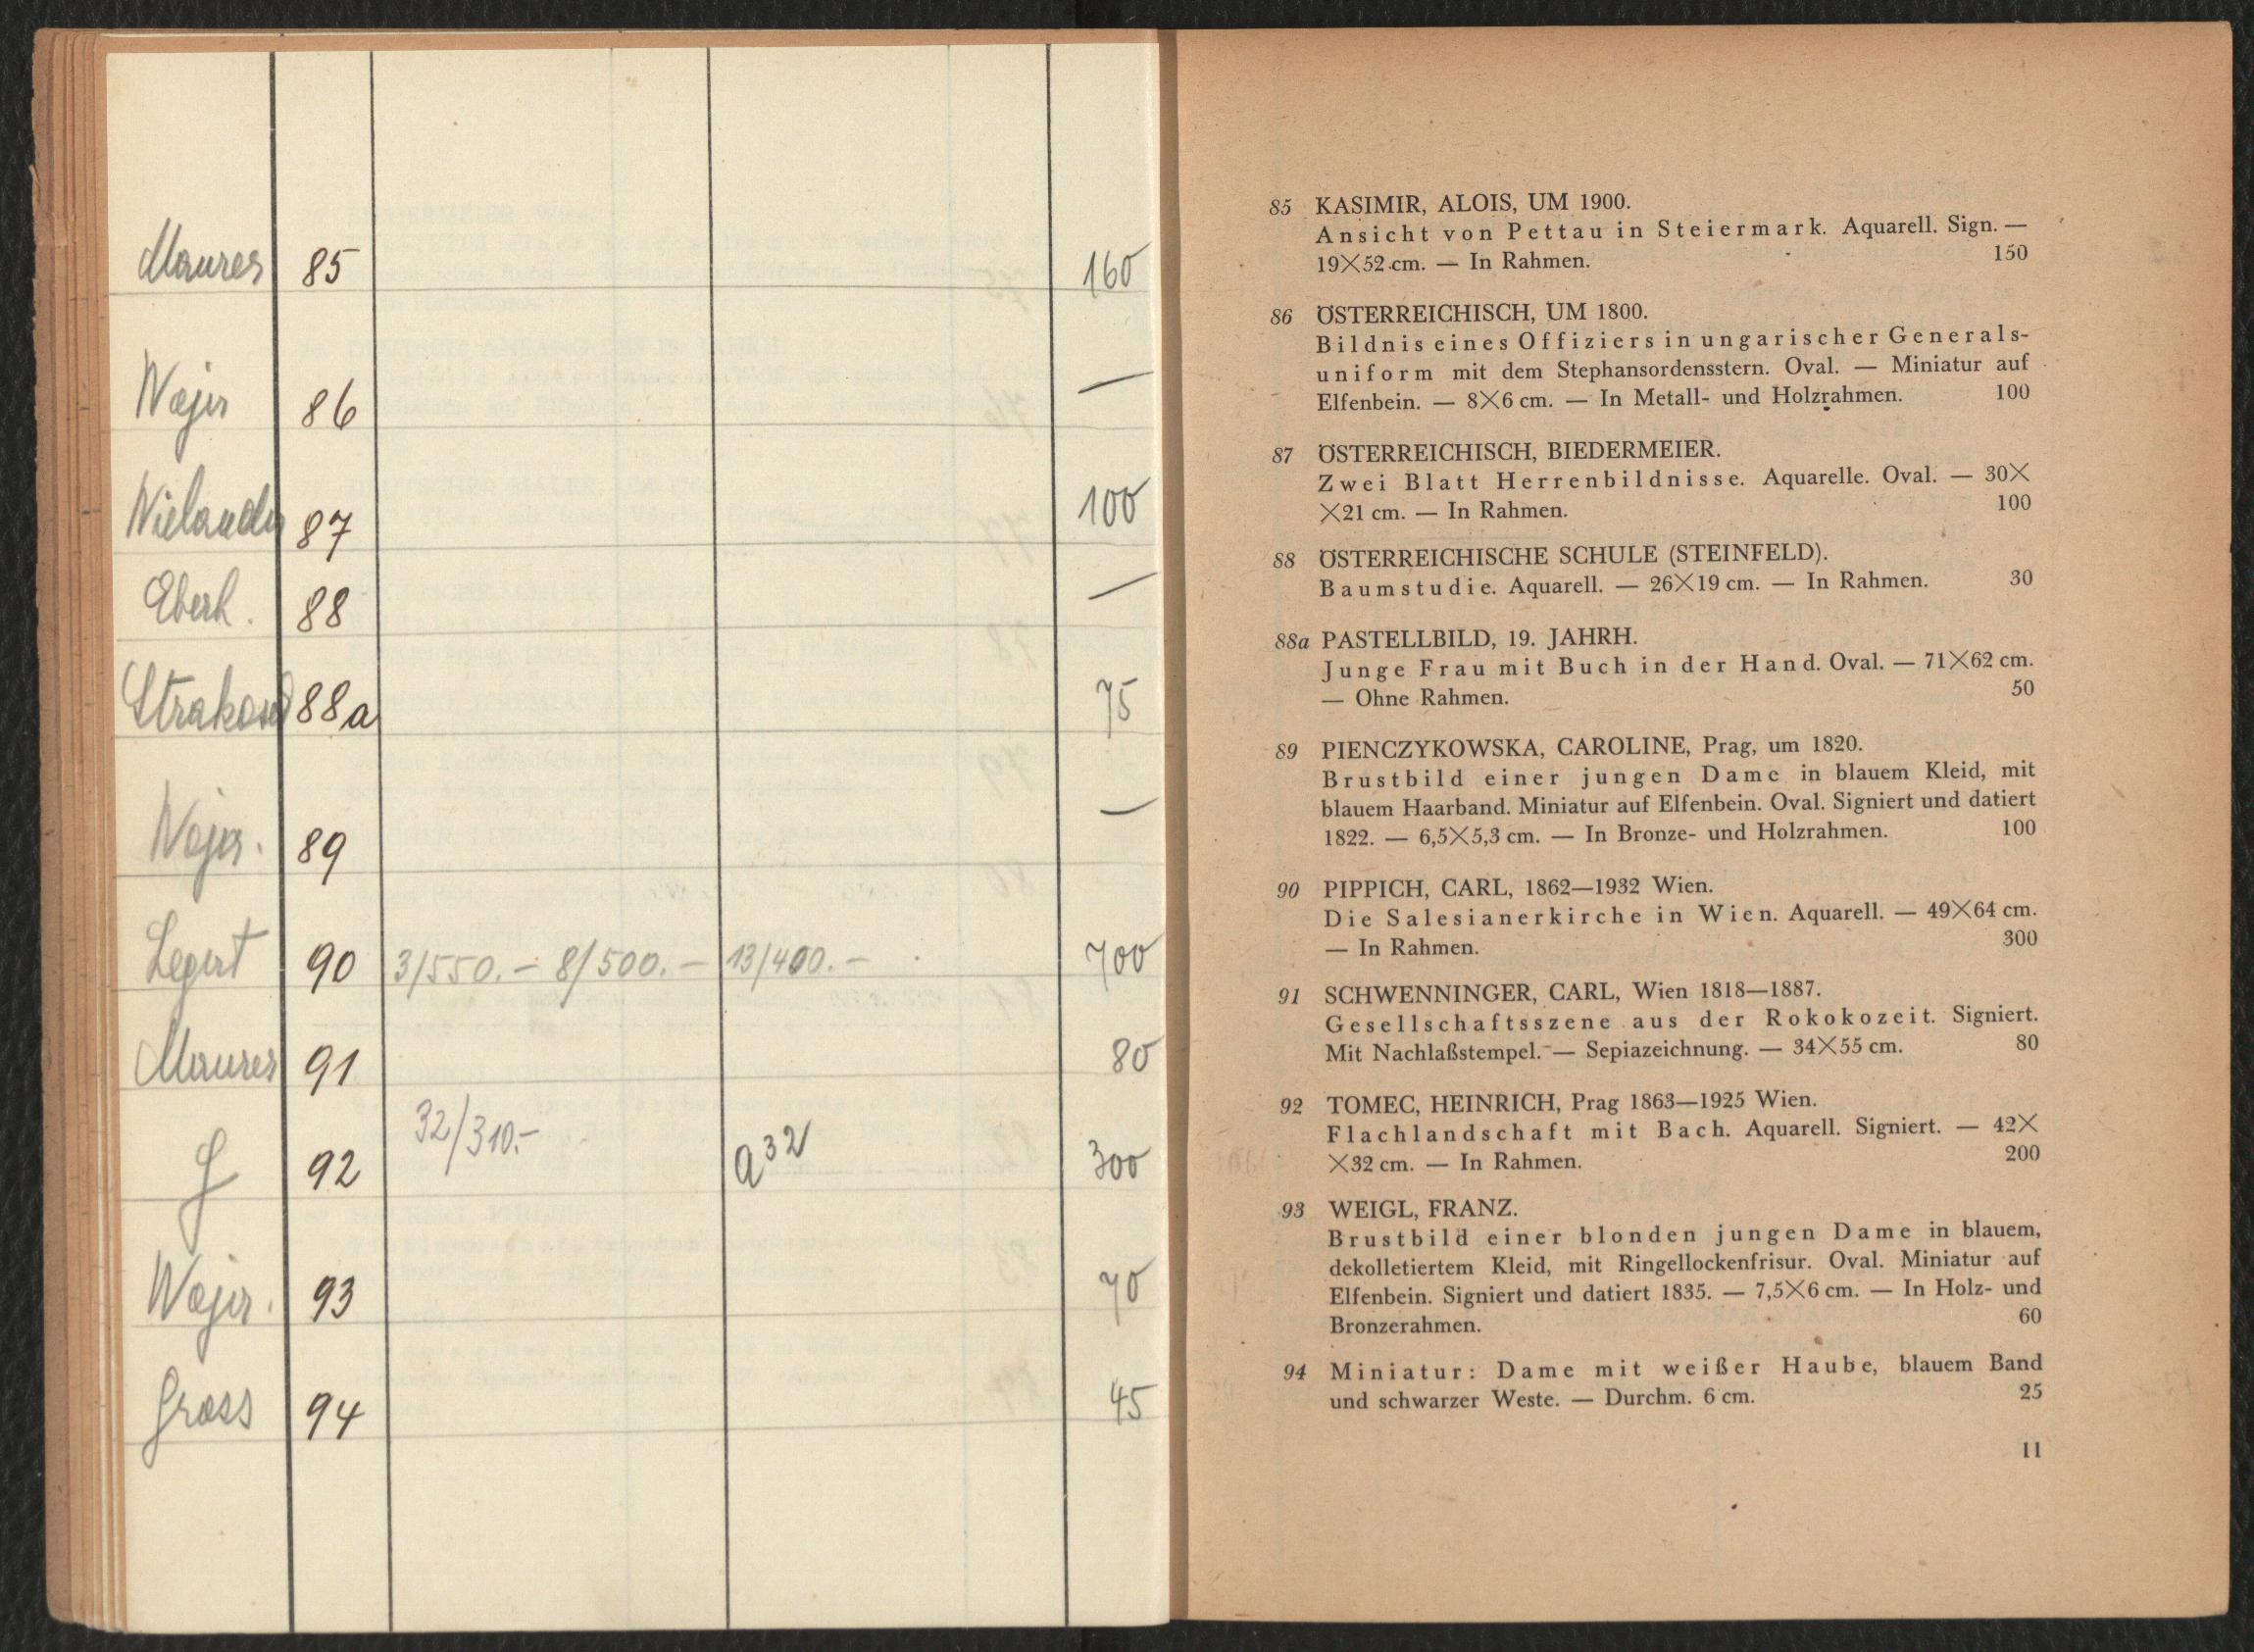 Maurer 85 160
Wajer 86 —
Wielander 87 100
Eberh. 88 —
Strakosch 88a 75
Wajer. 89 —
Legert 90 3/550.— 8/500.— 13/400.— 700
Maurer 91 80
92 32/310.— a32 300
Wajer. 93 70
Gross 94 45
85 KASIMIR, ALOIS, UM 1900.
Ansicht von Pettau in Steiermark. Aquarell. Sign. —
19×52 cm. — In Rahmen. 150
86 ÖSTERREICHISCH, UM 1800.
Bildnis eines Offiziers in ungarischer Generals-
uniform mit dem Stephansordensstern. Oval. — Miniatur auf
Elfenbein. — 8×6 cm. — In Metall- und Holzrahmen. 100
87 ÖSTERREICHISCH, BIEDERMEIER.
Zwei Blatt Herrenbildnisse. Aquarelle. Oval. — 30×
×21 cm. — In Rahmen. 100
88 ÖSTERREICHISCHE SCHULE (STEINFELD).
Baumstudie. Aquarell. — 26×19 cm. — In Rahmen. 30
88a PASTELLBILD, 19. JAHRH.
Junge Frau mit Buch in der Hand. Oval. — 71×62 cm.
— Ohne Rahmen. 50
89 PIENCZYKOWSKA, CAROLINE, Prag, um 1820.
Brustbild einer jungen Dame in blauem Kleid, mit
blauem Haarband. Miniatur auf Elfenbein. Oval. Signiert und datiert
1822. — 6,5×5,3 cm. — In Bronze- und Holzrahmen. 100
90 PIPPICH, CARL, 1862—1932 Wien.
Die Salesianerkirche in Wien. Aquarell. — 49×64 cm.
— In Rahmen. 300
91 SCHWENNINGER, CARL, Wien 1818—1887.
Gesellschaftsszene aus der Rokokozeit. Signiert.
Mit Nachlaßstempel. — Sepiazeichnung. — 34×55 cm. 80
92 TOMEC, HEINRICH, Prag 1863—1925 Wien.
Flachlandschaft mit Bach. Aquarell. Signiert. — 42×
×32 cm. — In Rahmen. 200
93 WEIGL, FRANZ.
Brustbild einer blonden jungen Dame in blauem,
dekolletiertem Kleid, mit Ringellockenfrisur. Oval. Miniatur auf
Elfenbein. Signiert und datiert 1835. — 7,5×6 cm. — In Holz- und
Bronzerahmen. 60
94 Miniatur: Dame mit weißer Haube, blauem Band
und schwarzer Weste. — Durchm. 6 cm. 25
11